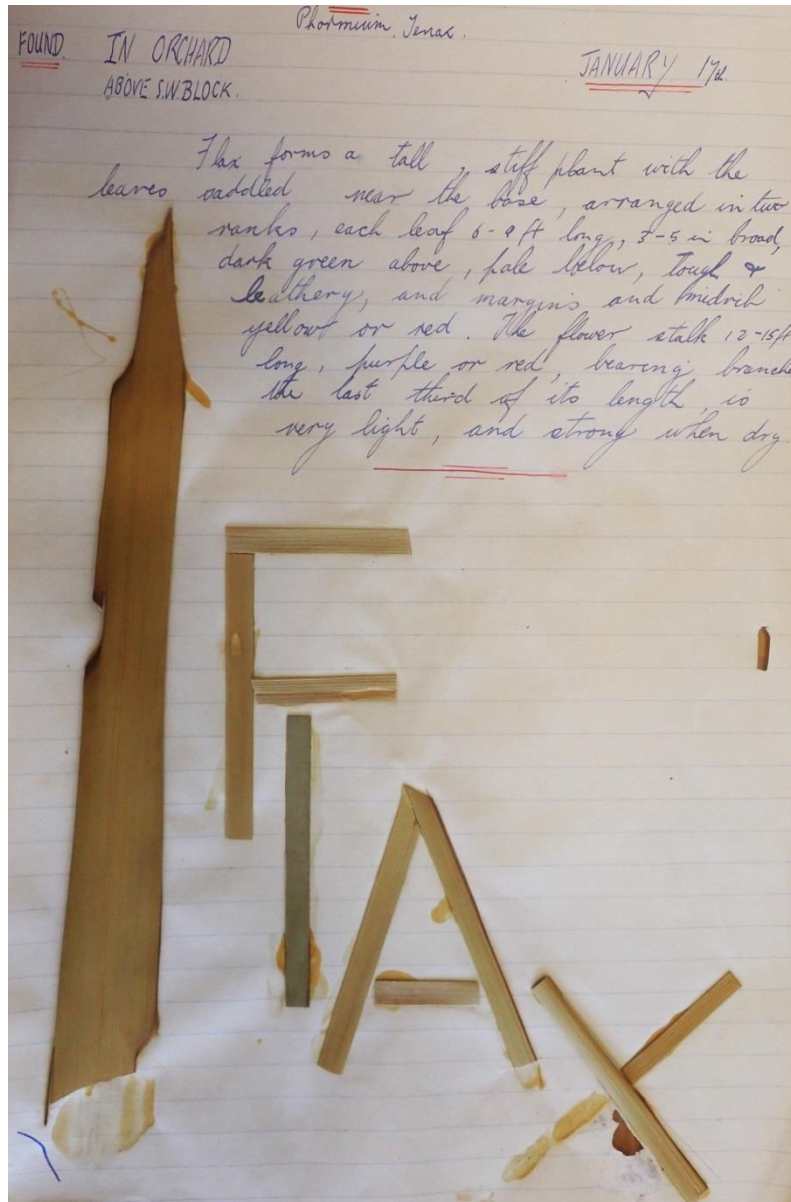 Phormium Tenax.
FOUND. IN ORCHARD
ABOVE S.W. BLOCK.
JANUARY 17d.
Flax forms a tall, stiff plant with the
leaves saddled near the base, arranged in two
ranks, each leaf 6-9 ft long, 3-5 in broad,
dark green above, pale below, tough &
leathery, and margins and midrib
yellow or red. The flower stalk 12-15 ft
long, purple or red, bearing branche
the last third of its length, is
very light, and strong when dry.
FLAX